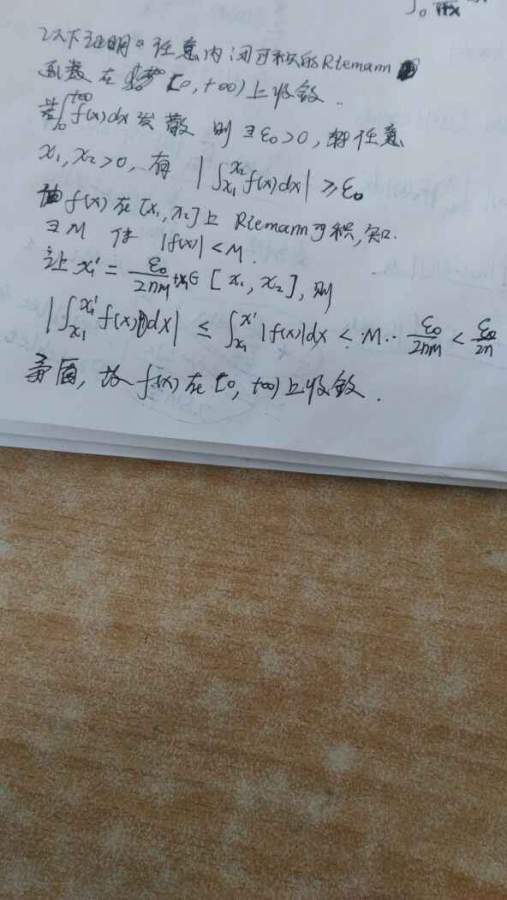 以下证明:任意内闭可积的Riemann
函数在 [0,+∞) 上收敛.
若∫₀^{+∞} f(x)dx 发散 则 ∃ε₀>0, 任意
x₁, x₂>0, 有 |∫_{x₁}^{x₂} f(x)dx| ≥ε₀
由 f(x) 在 [x₁, x₂] 上 Riemann可积,知.
∃M 使 |f(x)| < M.
让 x₁' = ε₀/2nM +x₁∈ [x₁, x₂], 则
|∫_{x₁}^{x₁'} f(x)dx| ≤ ∫_{x₁}^{x'} |f(x)|dx < M·· ε₀/2nM < ε₀/2n
矛盾, 故 f(x) 在 [0, +∞) 上收敛.